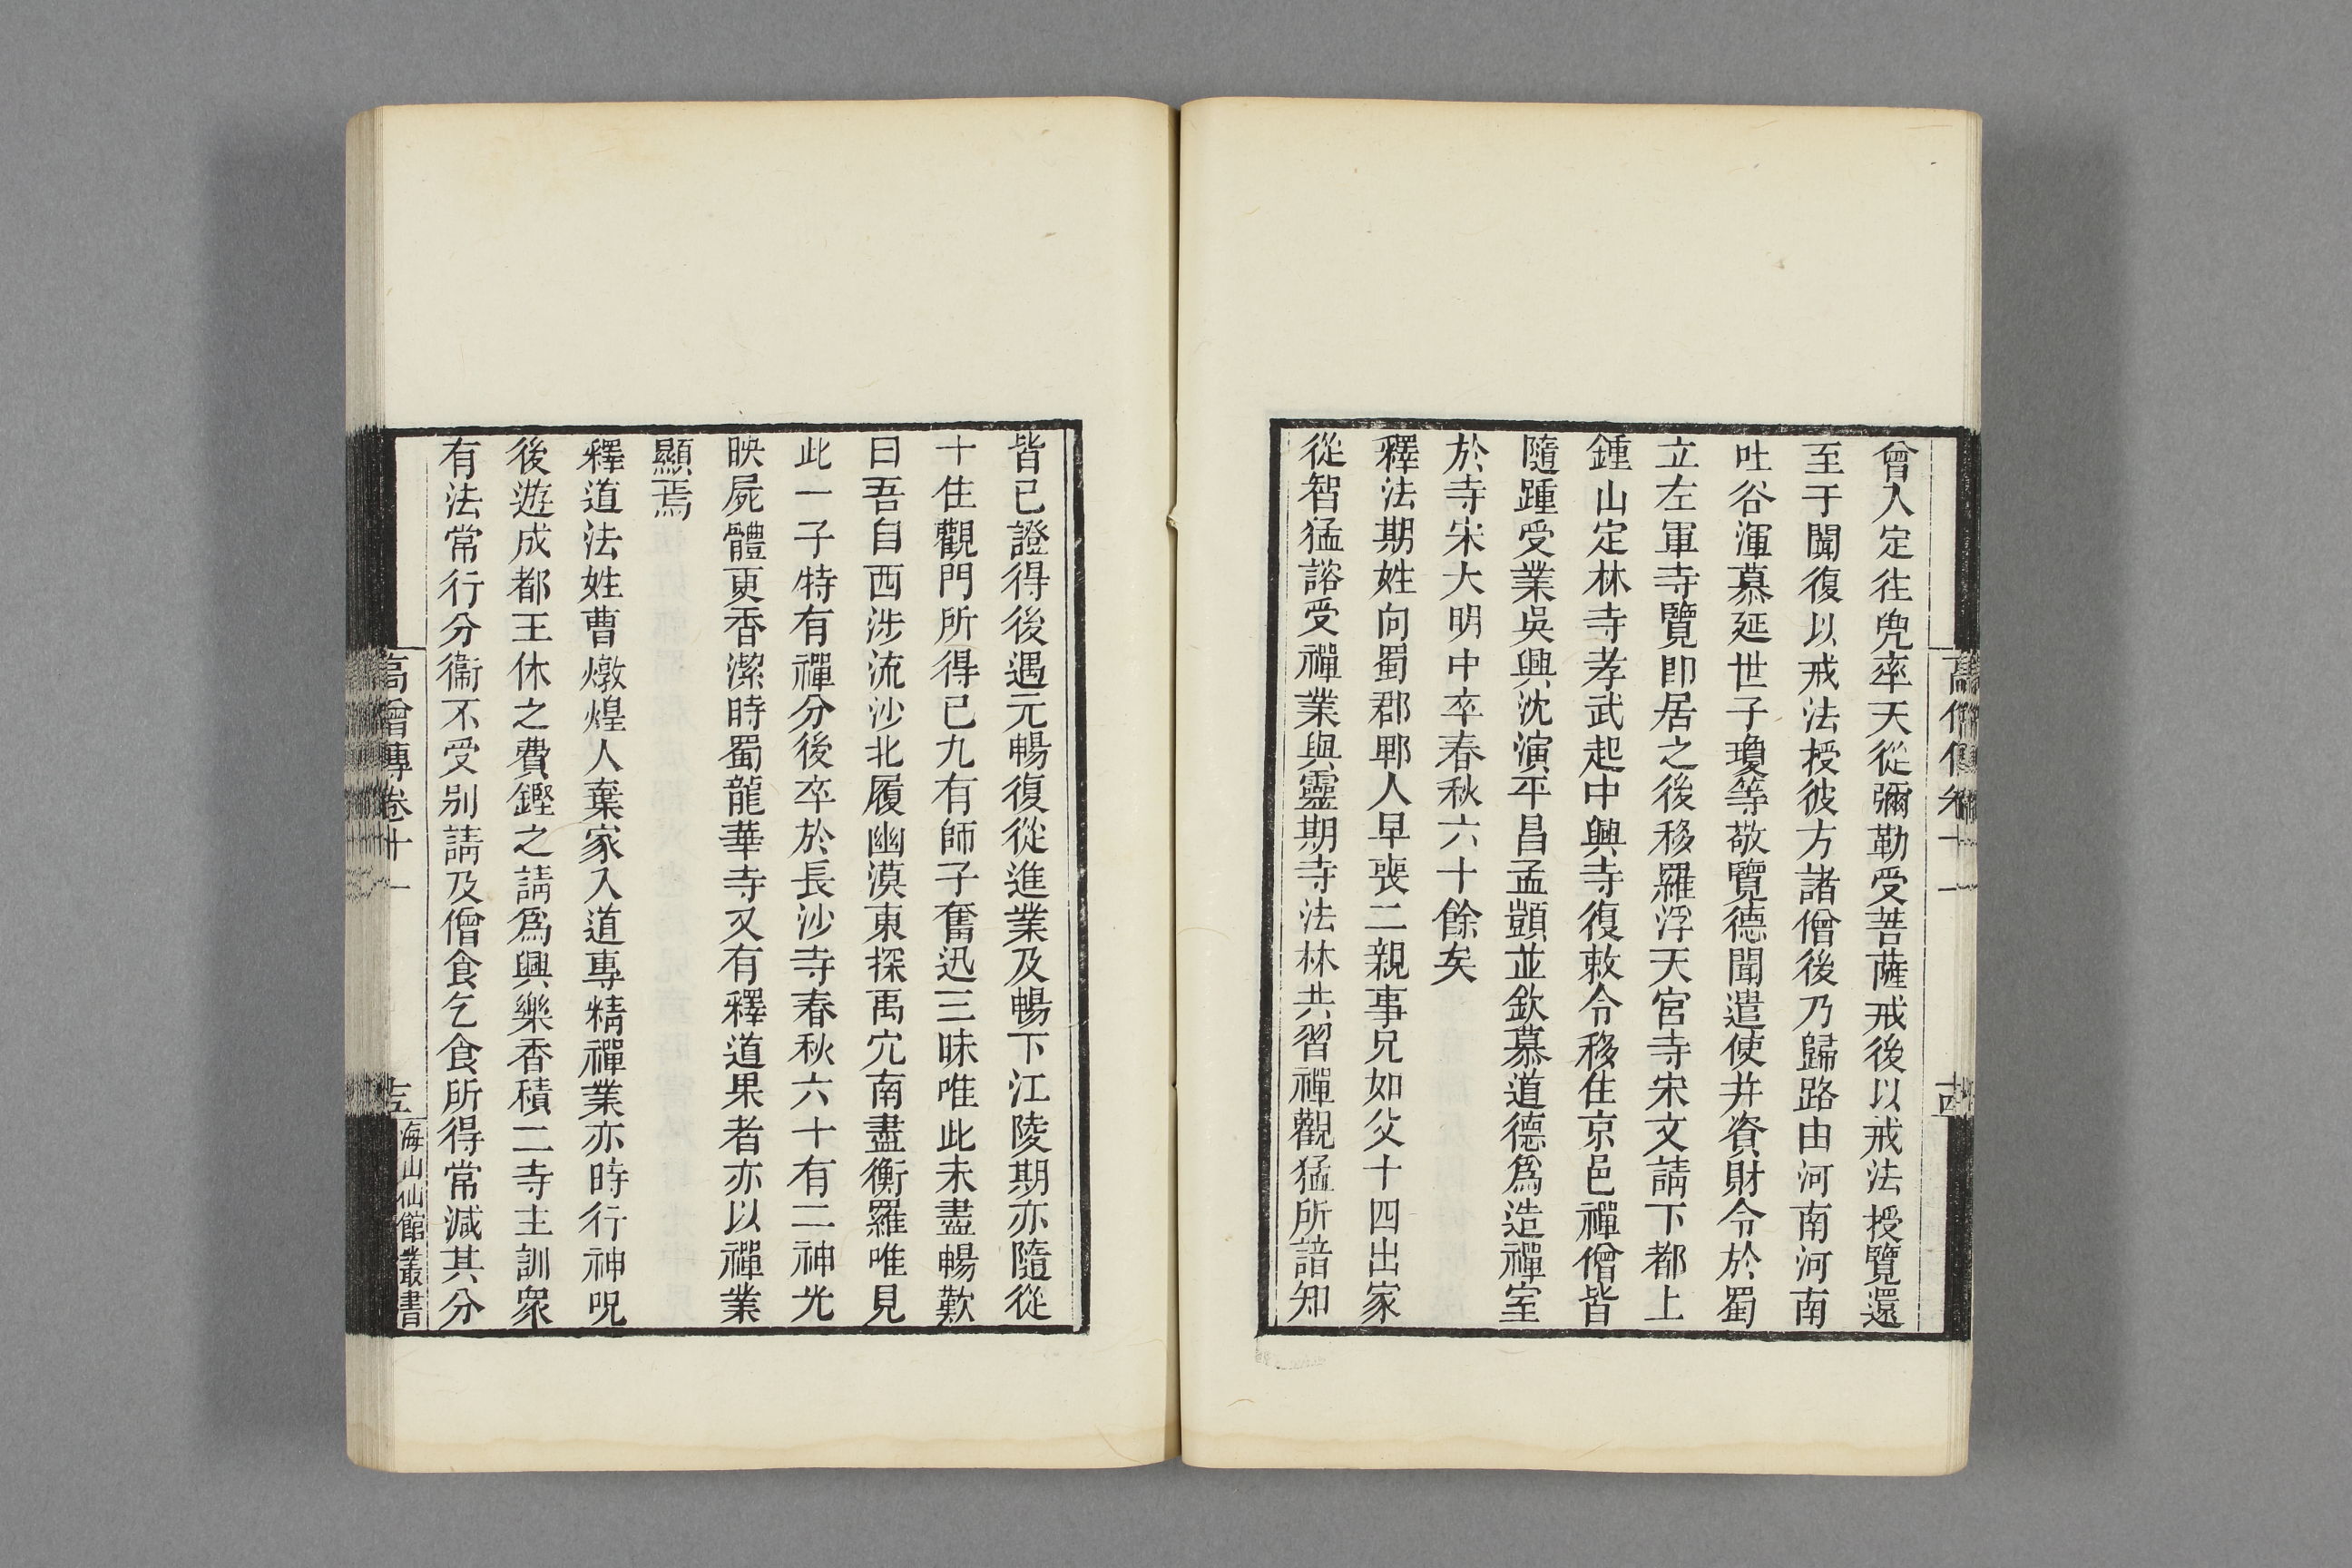 曾入定往兜率天從彌勒受菩薩戒後以戒法授覽還
至于闐復以戒法授彼方諸僧後乃歸路由河南河南
吐谷渾慕延世子瓊等敬覽德聞遣使并資財令於蜀
立左軍寺覽即居之後移羅浮天宮寺宋文請下都上
鍾山定林寺孝武起中興寺復敕令移住京邑禪僧皆
隨踵受業吳興沈演平昌孟顗並欽慕道德爲造禪室
於寺宋大明中卒春秋六十餘矣
釋法期姓向蜀郡郫人早喪二親事兄如父十四出家
從智猛諮受禪業與靈期寺法林共習禪觀猛所諳知
皆已證得後遇元暢復從進業及暢下江陵期亦隨從
十住觀門所得已九有師子奮迅三昧唯此未盡暢歎
曰吾自西涉流沙北履幽漠東探禹穴南盡衡羅唯見
此一子特有禪分後卒於長沙寺春秋六十有二神光
映屍體更香潔時蜀龍華寺又有釋道果者亦以禪業
顯焉
釋道法姓曹燉煌人棄家入道專精禪業亦時行神呪
後遊成都王休之費鏗之請爲興樂香積二寺主訓衆
有法常行分衞不受別請及僧食乞食所得常減其分
高僧傳卷十一
海山仙館叢書